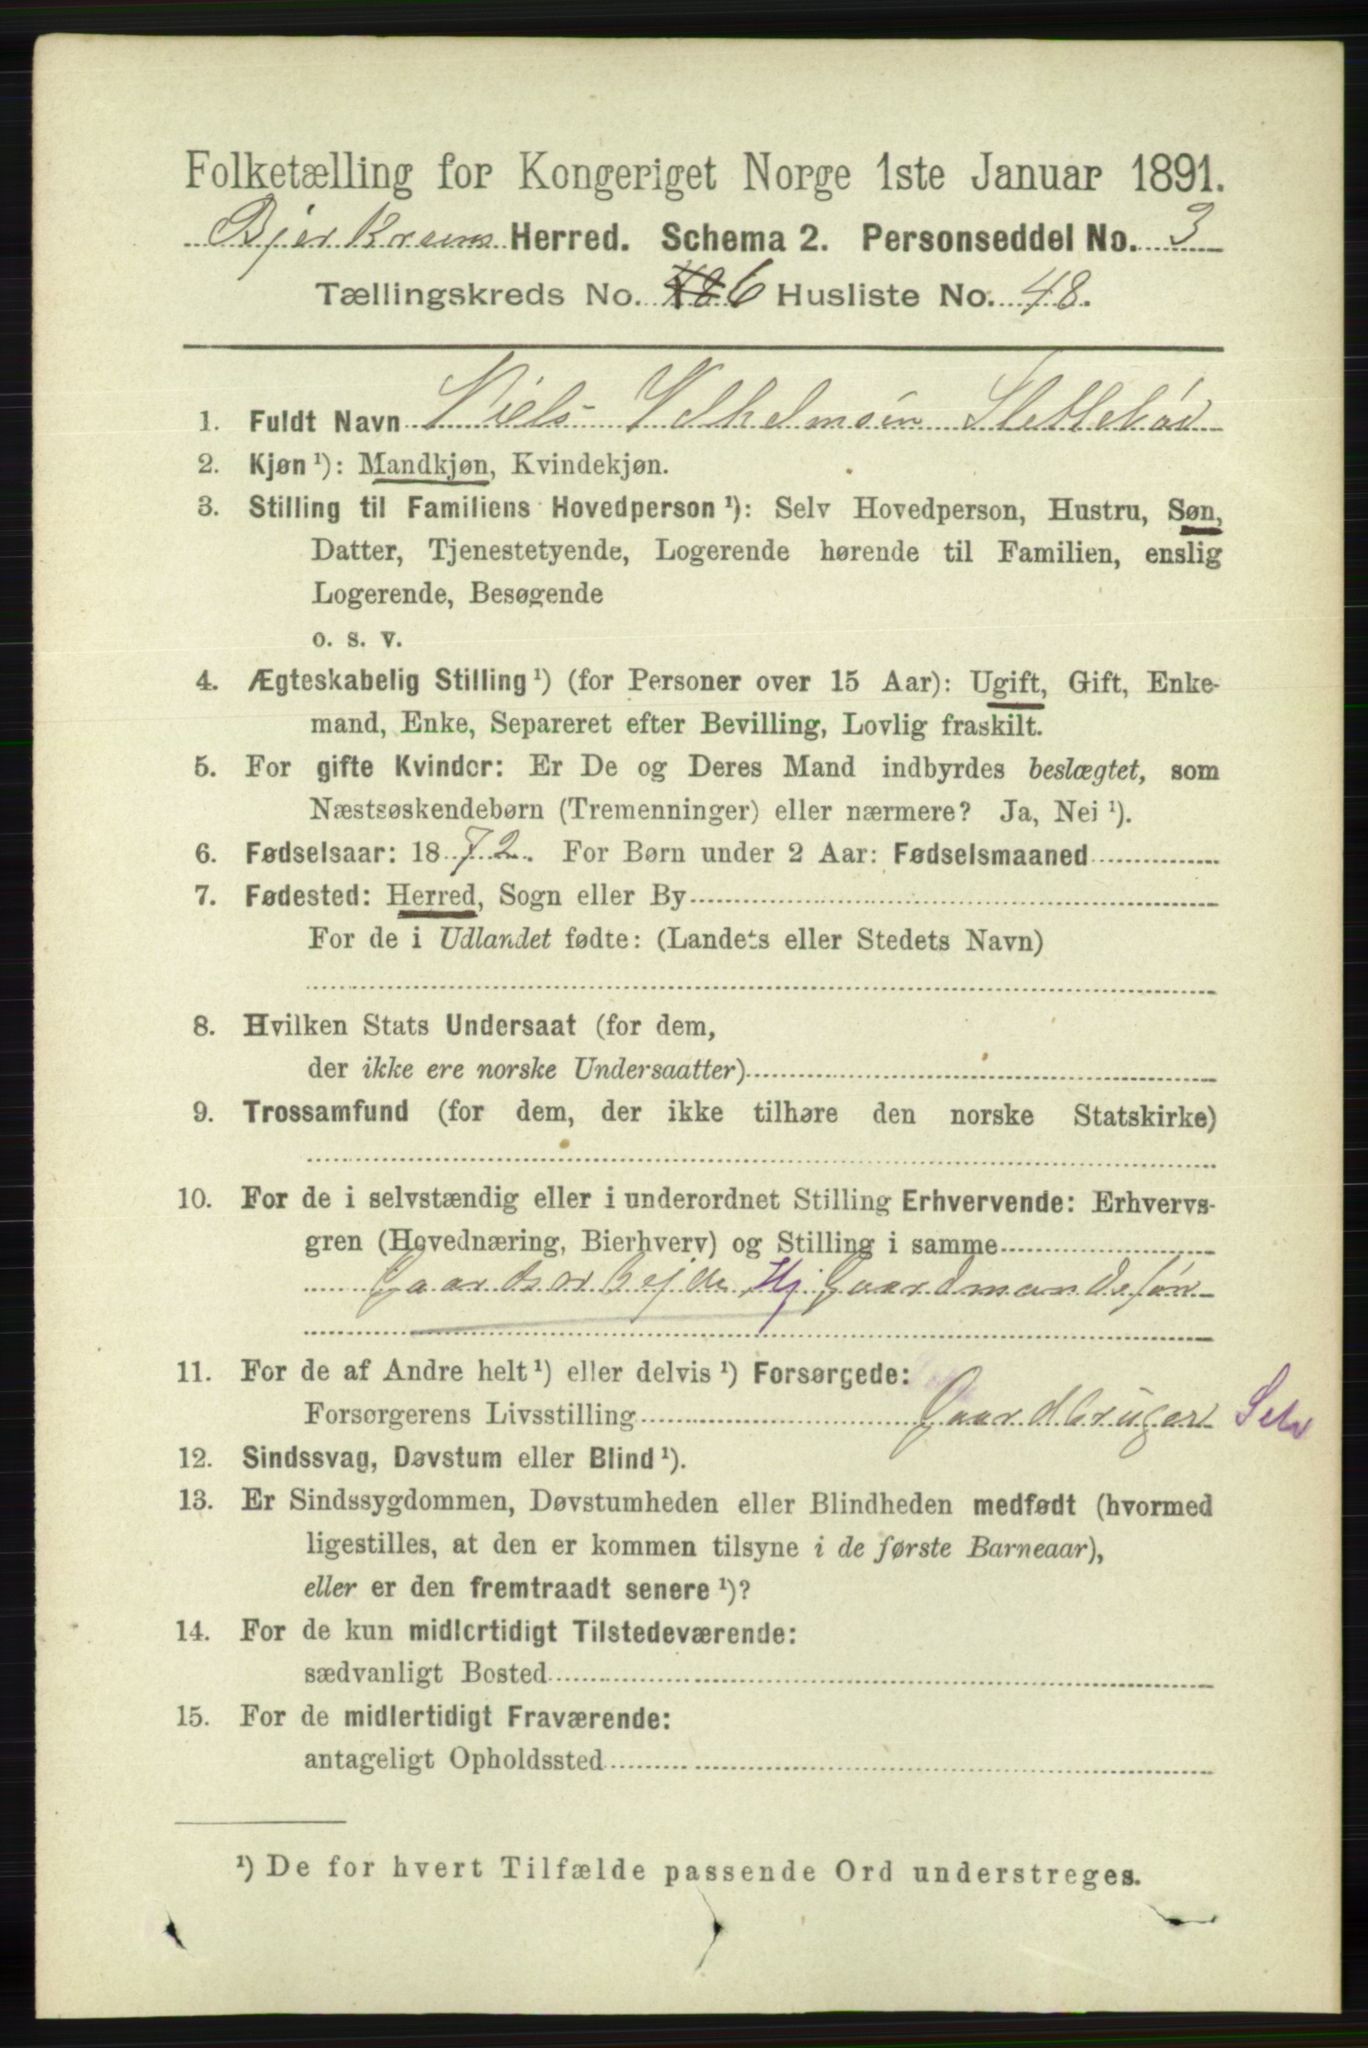 Folketælling for Kongeriget Norge 1ste Januar 1891.
Bjerkreim Herred. Schema 2. Personseddel No. 3
Tællingskreds No. 6 Husliste No. 48.
1. Fuldt Navn Niels Vilhelmsen Slettebø
2. Kjøn ¹): Mandkjøn, Kvindekjøn.
3. Stilling til Familiens Hovedperson ¹): Selv Hovedperson, Hustru, Søn,
Datter, Tjenestetyende, Logerende hørende til Familien, enslig
Logerende, Besøgende
o. s. v.
4. Ægteskabelig Stilling ¹) (for Personer over 15 Aar): Ugift, Gift, Enke-
mand, Enke, Separeret efter Bevilling, Lovlig fraskilt.
5. For gifte Kvinder: Er De og Deres Mand indbyrdes beslægtet, som
Næstsøskendebørn (Tremenninger) eller nærmere? Ja, Nei ¹).
6. Fødselsaar: 1872. For Børn under 2 Aar: Fødselsmaaned
7. Fødested: Herred, Sogn eller By
For de i Udlandet fødte: (Landets eller Stedets Navn)
8. Hvilken Stats Undersaat (for dem,
der ikke ere norske Undersaatter)
9. Trossamfund (for dem, der ikke tilhøre den norske Statskirke)
10. For de i selvstændig eller i underordnet Stilling Erhvervende: Erhvervs-
gren (Hovednæring, Bierhverv) og Stilling i samme
Gaardsarbejde Hj Gaardmandssøn
11. For de af Andre helt ¹) eller delvis ¹) Forsørgede:
Forsørgerens Livsstilling Gaardbruger Selv
12. Sindssvag, Døvstum eller Blind ¹).
13. Er Sindssygdommen, Døvstumheden eller Blindheden medfødt (hvormed
ligestilles, at den er kommen tilsyne i de første Barneaar),
eller er den fremtraadt senere ¹)?
14. For de kun midlertidigt Tilstedeværende:
sædvanligt Bosted
15. For de midlertidigt Fraværende:
antageligt Opholdssted
¹) De for hvert Tilfælde passende Ord understreges.